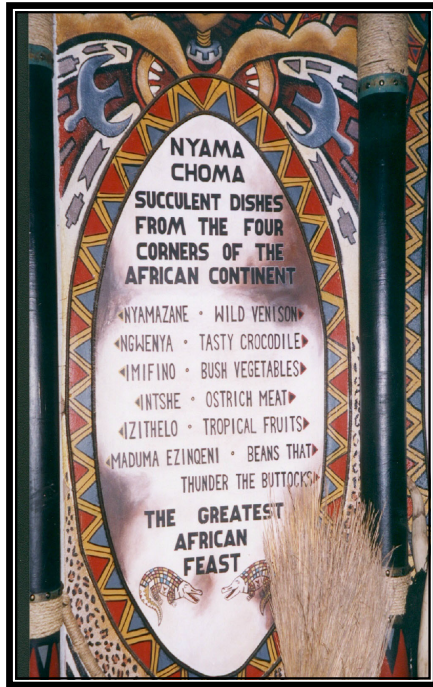 NYAMA
CHOMA
SUCCULENT DISHES
FROM THE FOUR
CORNERS OF THE
AFRICAN CONTINENT
NYAMAZANE • WILD VENISON
NGWENYA • TASTY CROCODILE
IMIFINO • BUSH VEGETABLES
INTSHE • OSTRICH MEAT
IZITHELO • TROPICAL FRUITS
MADUMA EZINQENI • BEANS THAT
THUNDER THE BUTTOCKS
THE GREATEST
AFRICAN
FEAST